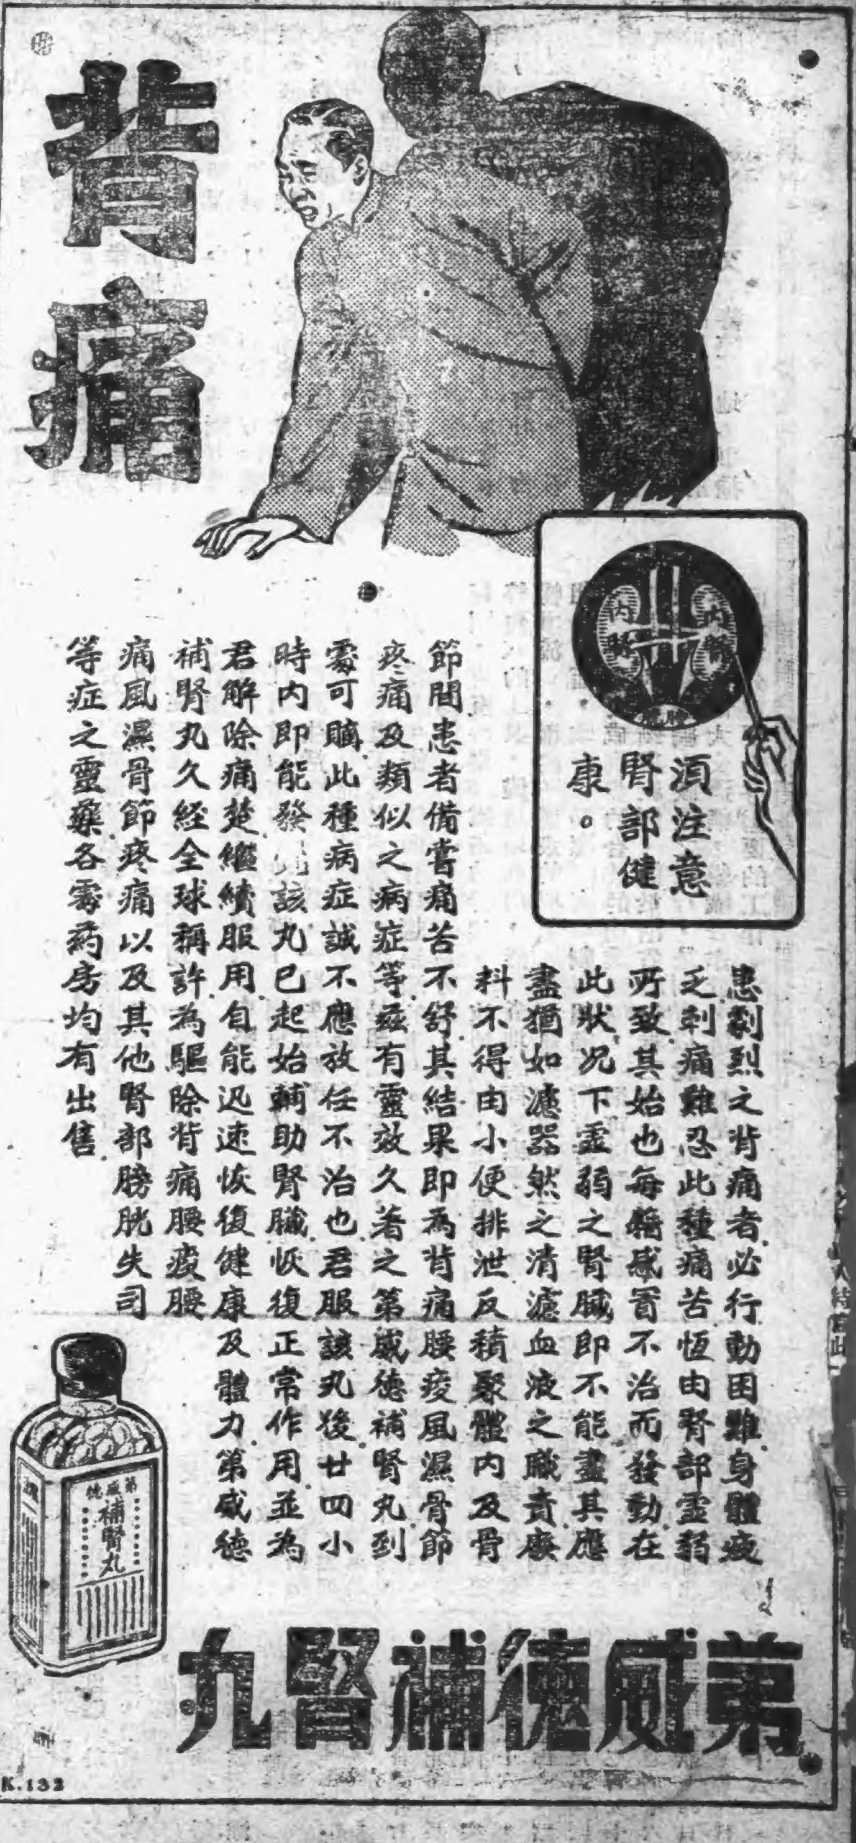 背痛
內腎
內腎
膀胱
須注意
腎部健
康。
患劇烈之背痛者必行動困難身體疲
乏刺痛難忍此種痛苦恆由腎部虛弱
所致其始也每藉感冒不治而發動在
此狀况下虛弱之腎臟即不能盡其應
盡猶如濾器然之清濾血液之職責廢
料不得由小便排泄反積聚體內及骨
節間患者備嘗痛苦不舒其結果即為背痛腰痠風濕骨節
疼痛及類似之病症等茲有靈效久著之第威德補腎丸到
處可購此種病症誠不應放任不治也君服該丸後廿四小
時内即能發該丸已起始輔助腎臟恢復正常作用並為
君解除痛楚繼續服用自能迅速恢復健康及體力第威德
補腎丸久經全球稱許為驅除背痛腰痠腰
痛風濕骨節疼痛以及其他腎部膀胱失司
等症之靈藥各處葯房均有出售
第威德
補腎丸
第威德補腎丸
K.132